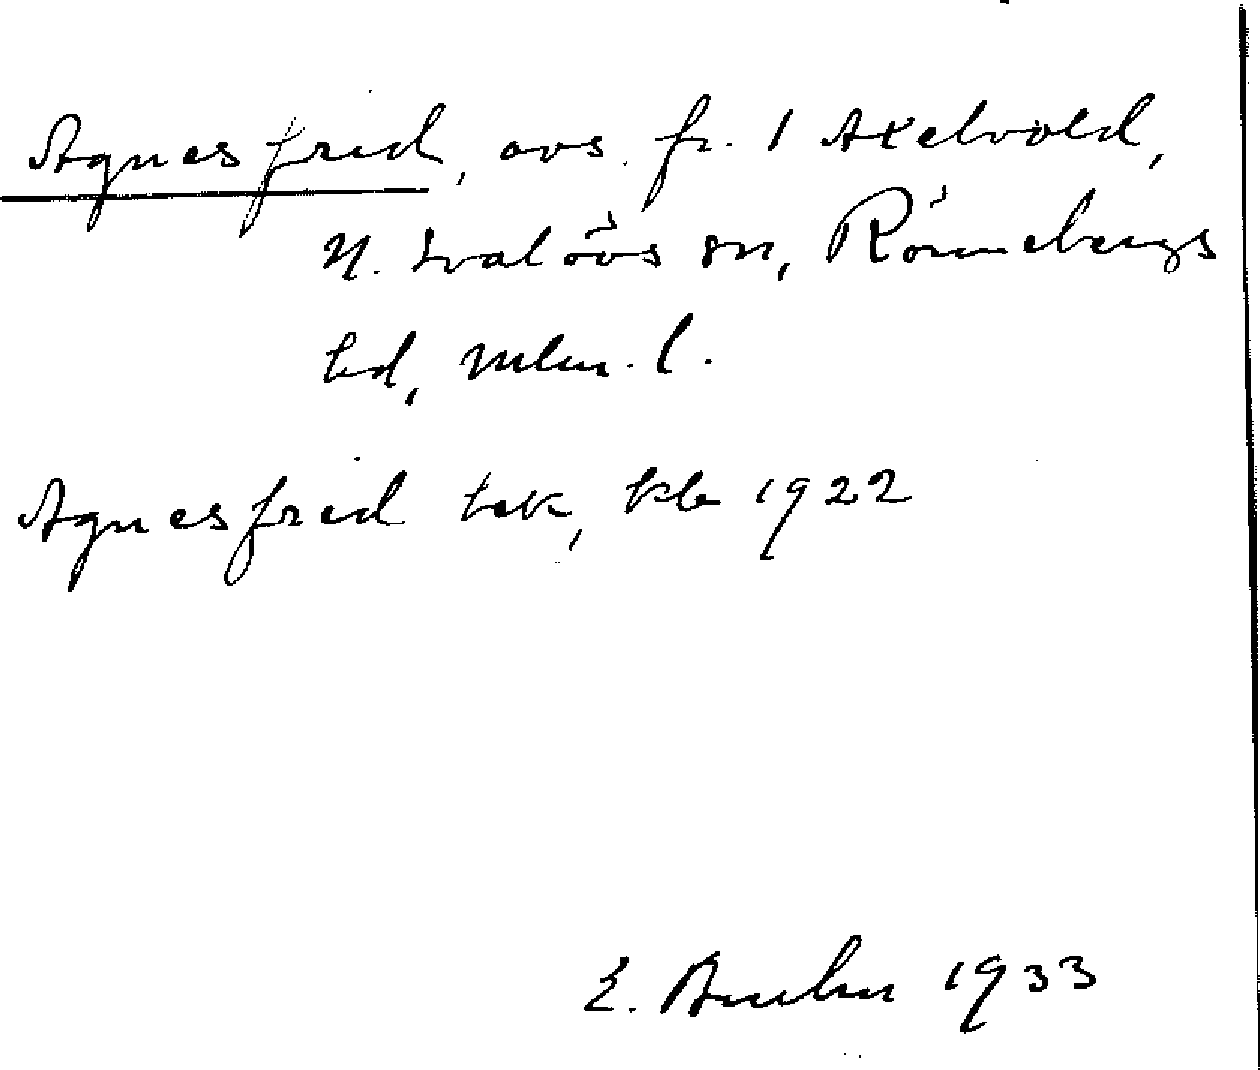 Agnesfrid, avs. fr. 1 Axelvold,
N. Svalövs sn, Rönnebergs
hd, Mlm. l.
Agnesfrid tsk, kb 1922
E. 1933